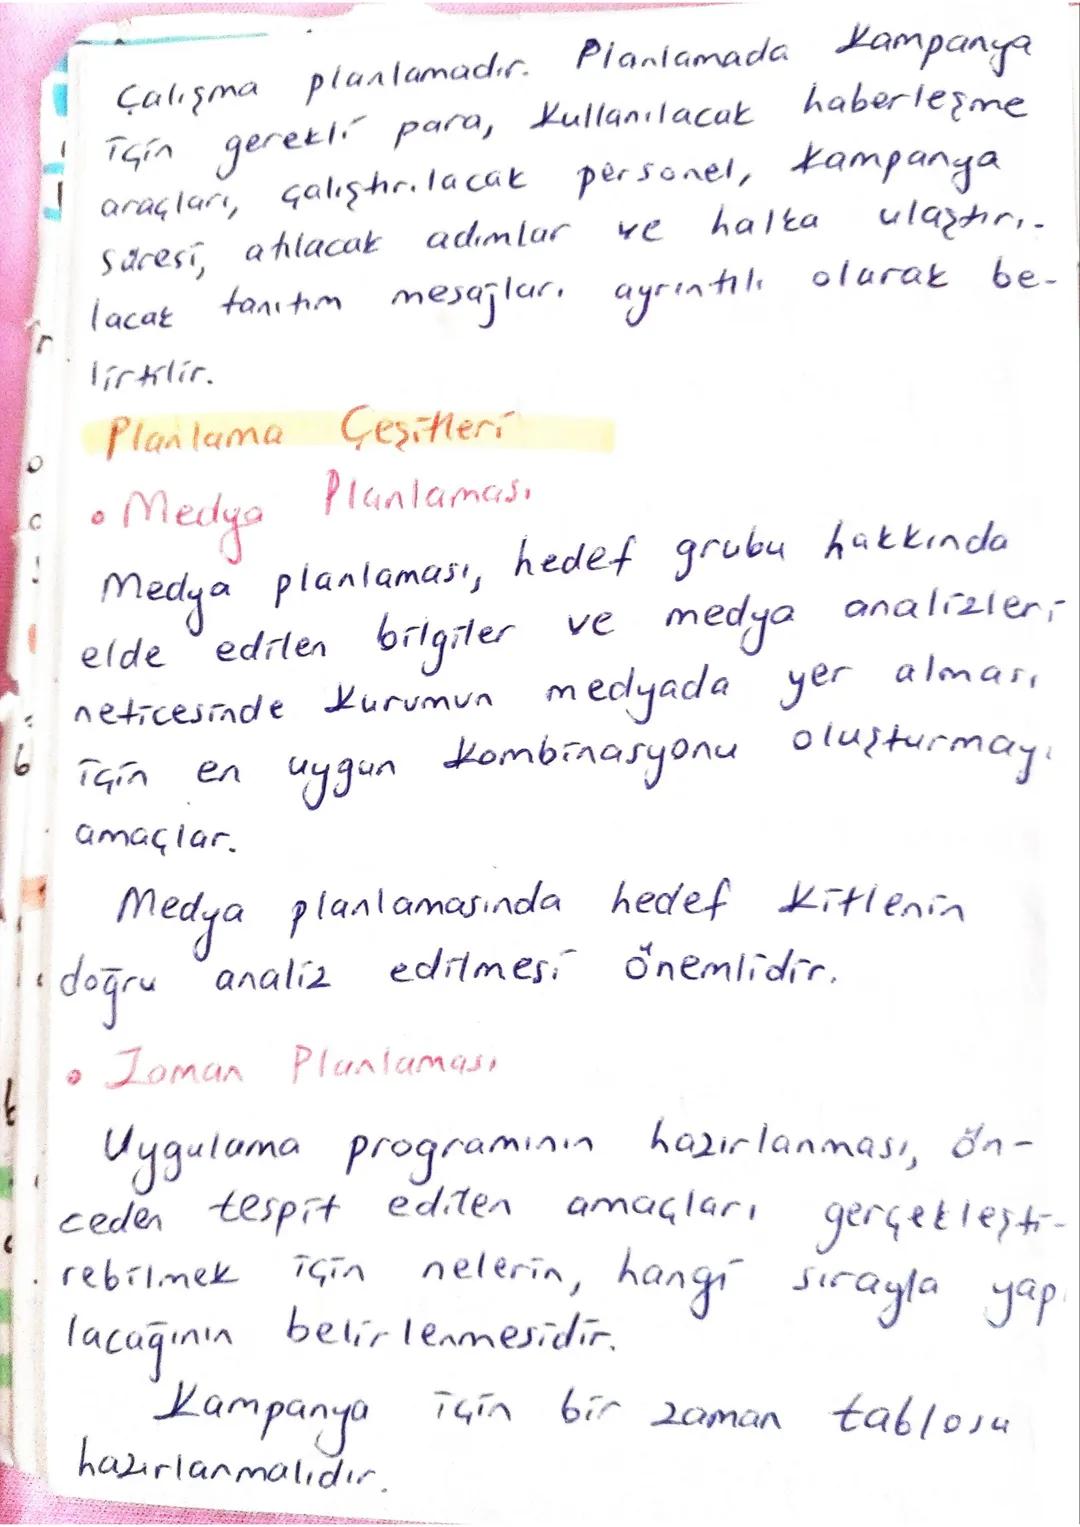 Çalışma planlamadır. Planlamada kampanya
için gerekli para, kullanılacak haberleşme
araçları, çalıştırılacak personel, kampanya
süresi, atılacak adımlar ve halka ulaştırı-
lacak tanıtım mesajları ayrıntılı olarak be-
lirtilir.
Planlama Çeşitleri
• Medya Planlaması
Medya planlaması, hedef grubu hakkında
elde edilen bilgiler ve medya analizleri
neticesinde kurumun medyada yer alması
için en uygun kombinasyonu oluşturmayı
amaçlar.
Medya planlamasında hedef kitlenin
doğru analiz edilmesi önemlidir.
• Zaman Planlaması
Uygulama programının hazırlanması, ön-
ceden tespit edilen amaçları gerçekleşti-
rebilmek için nelerin, hangi sırayla yapı
lacağının belirlenmesidir.
Kampanya için bir zaman tablosu
hazırlanmalıdır.